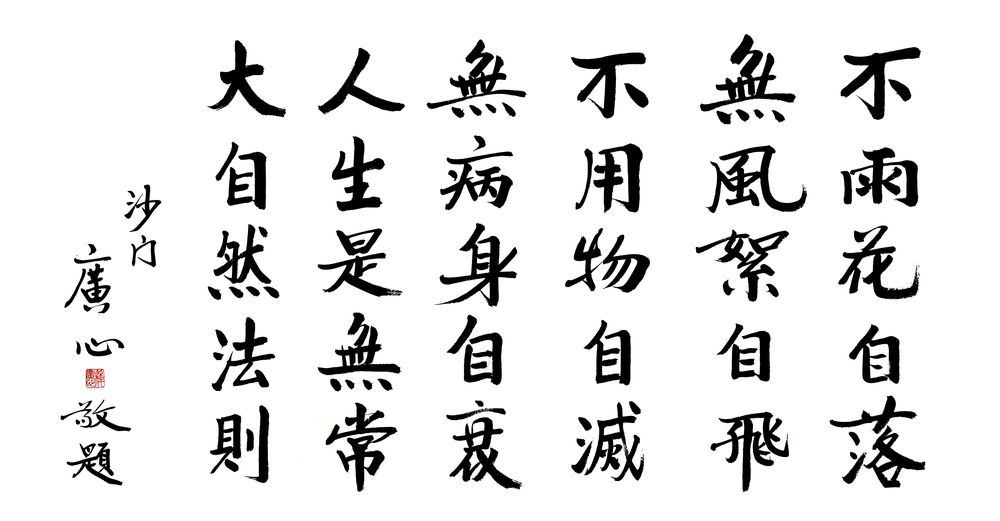 不雨花自落
無風絮自飛
不用物自滅
無病身自衰
人生是無常
大自然法則
沙门
廣心
敬題